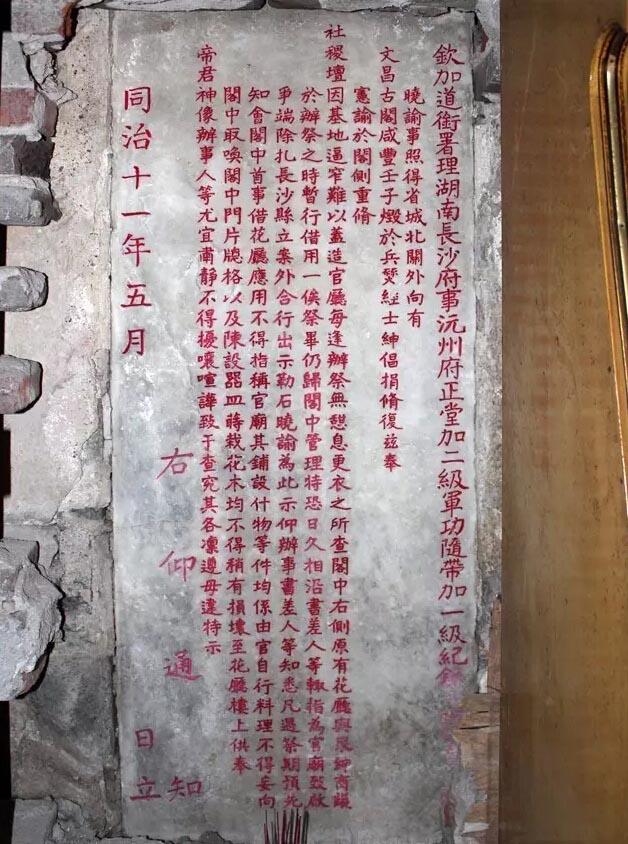 欽加道銜署理湖南長沙府事沅州府正堂加二級軍功隨帶加一級紀
曉諭事照得省城北關外向有
文昌古閣咸豐壬子燬於兵燹經士紳倡捐脩復茲奉
憲諭於閣側重脩
社稷壇因基地逼窄難以蓋造官廳每逢辦祭無憩息更衣之所查閣中右側原有花廳與
於辦祭之時暫行借用一俟祭畢仍歸閣中管理特恐日久相沿書差人等輒指為官廟致啟
爭端除扎長沙縣立案外合行出示勒石曉諭為此示仰辦事書差人等知悉凡遇祭期預先
知會閣中首事借花廳應用不得指稱官廟其鋪設什物等件均係由官自行料理不得妄向
閣中取喚閣中門片牕格以及陳設器皿蒔栽花木均不得稍有損壞至花廳樓上供奉
帝君神像辦事人等尤宜肅靜不得擾嚷喧譁致于查究其各凜遵毋違特示
右仰通知
同治十一年五月 日立